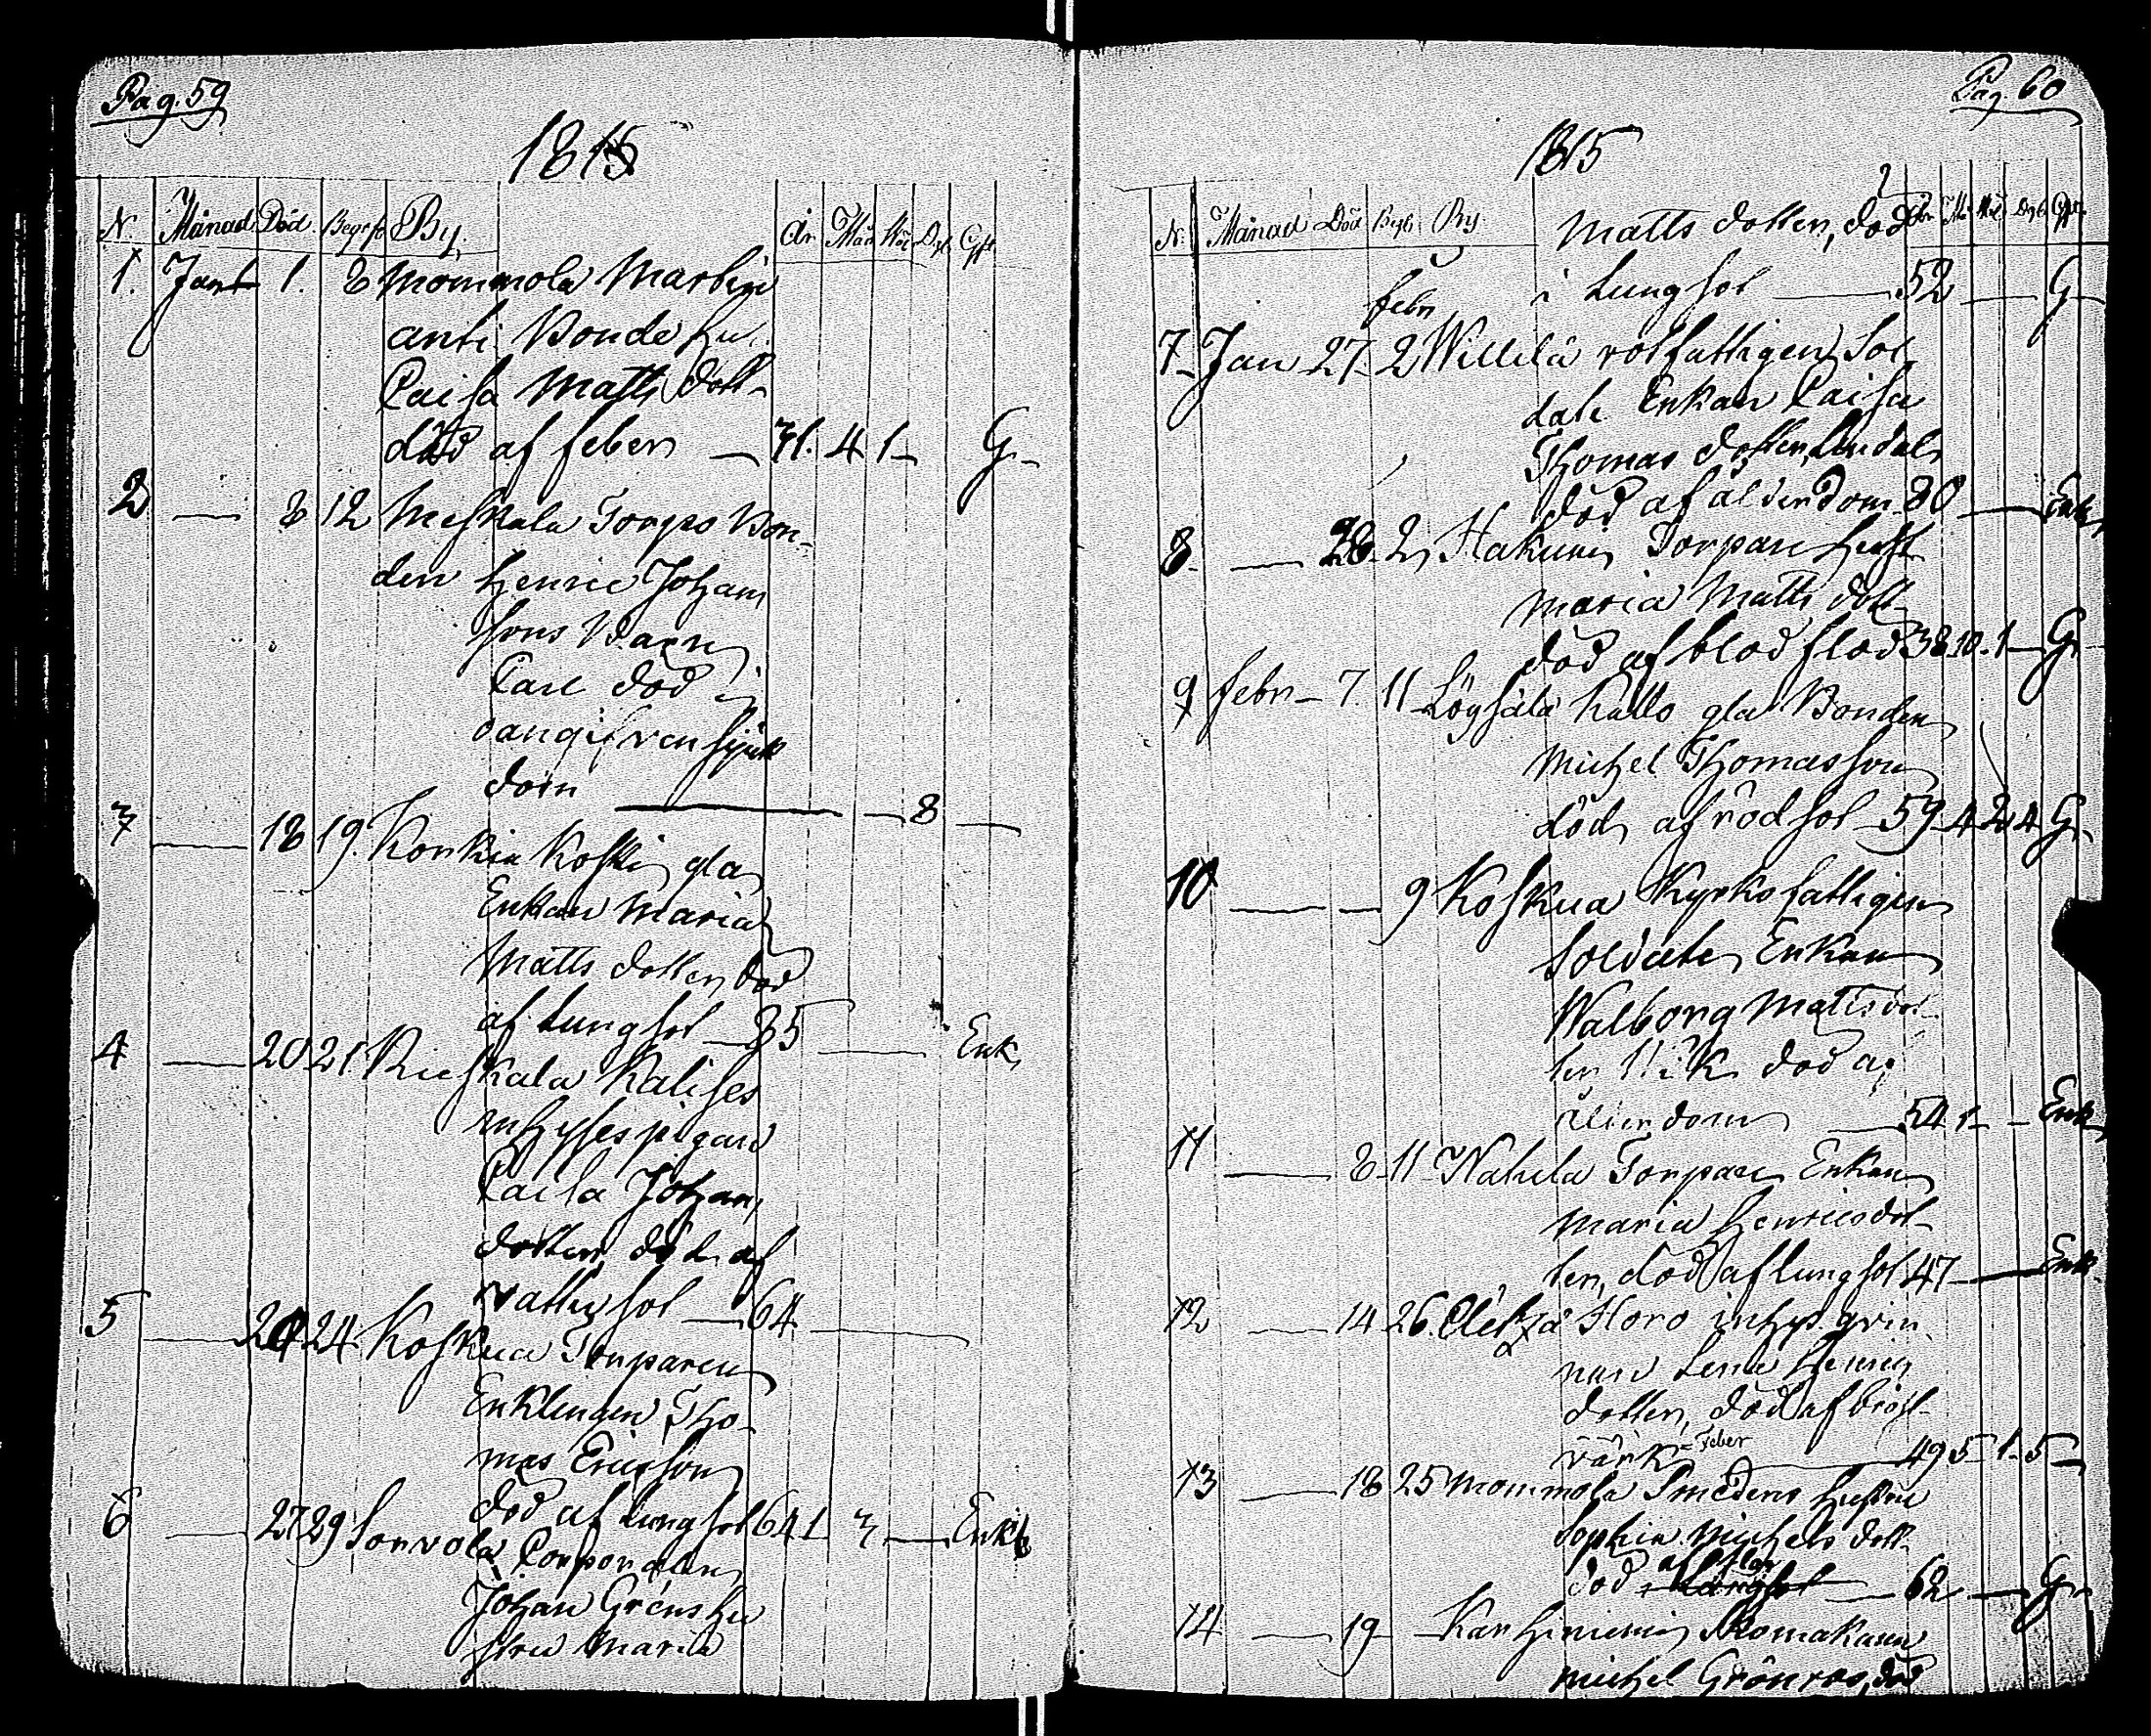 Pag. 59
1815
N. Månad Död Begrafn By, År Mån Wec Dag Gift
1. Janr 1. 8 Mommola Martin
anti Bonde Hu.
Caisa Matts dott-
död af feber — 71. 4 1 — G.-
2 — 8 12 Meskala Torpo Bon-
den Henric Johan
sons Barn
Carl död i
oangifven sjuk
dom — — 8 —
3 — 18 19. Korkia Koski gla
Enkan Maria
Matts dotter död
af Lungsot — 85 — Enk,
4 — 20 21 Kieskala Kalises
inhyses pigan
Caisa Johan,
dotter död af
vattusot — 64 —
5 — 24 Koskua Torparen
Enklingen Tho-
mas Ericsson
död af Lungsot 64 1 3 — Enkl
6 — 27 29 Sorvola Corporalen
Johan Gréns Hu
stru Maria
Pag. 60
1815
N. Månad Död Begr By År Må Wec Dag Gift
Matts dotter, död
i Lungsot — 52 — G
febr
7 — Jan 27 — 2 Willilä rotfattigen Sol
date Enkan Caisa
Thomas dotter Lindal,
död af ålderdom 80 — Enk,
8. — 28. 2, Hakuni Torpare Hust
Maria Matts dott-
död af blodflod 38 10. 1 — G
9 febr — 7. 11 Löysälä Kallo gla Bonden
Michel Thomasson
död, af rödsot 59 4 2 4 G.
10 — — 9 Koskua Kyrkofattigen
Soldate, Enkan
Walborg Matts dot-
ter död af
ålderdom — 54 1 — — Enk
11 — 8 — 11 Wahila Torpare Enkan
Maria Henricsdot-
ter, död af Lungsot 47 — Enk.
12 — 14 26. Horo inhys qvin
nan Lena Henrics
dotter, död af bröst-
värk = Feber — 49 5 1 — 5
13 — 18 25 Mommola Smedens Hustru
Sophia Michels dott-
död, af — 62 — G.
14 — 19 — Skomakaren
Michel Grönroos, död